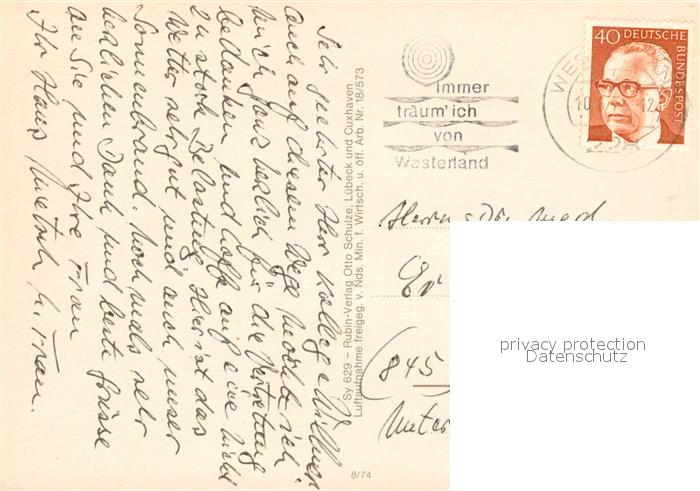 Sehr geehrter Herr Kollege Willner.
Auch auf diesem Wege möchte ich
mich ganz herzlich für die Vertretung
bedanken und hoffe auf eine nicht
zu starke Belastung. Hier ist das
Wetter sehr gut und auch unser
Sonnenbrand. Nochmals sehr
herzlichen Dank und beste Grüsse
an Sie und Ihre Frau
Ihr Haus u. Frau.
Sy 629 – Rubin-Verlag Otto Schulze, Lübeck und Cuxhaven
Luftaufnahme freigeg. v. Nds. Min. f. Wirtsch. u. öff. Arb. Nr. 18/573
8/74
Immer
träum' ich
von
Westerland
40 DEUTSCHE BUNDESPOST
Herrn Dr. med.
(845)
privacy protection
Datenschutz